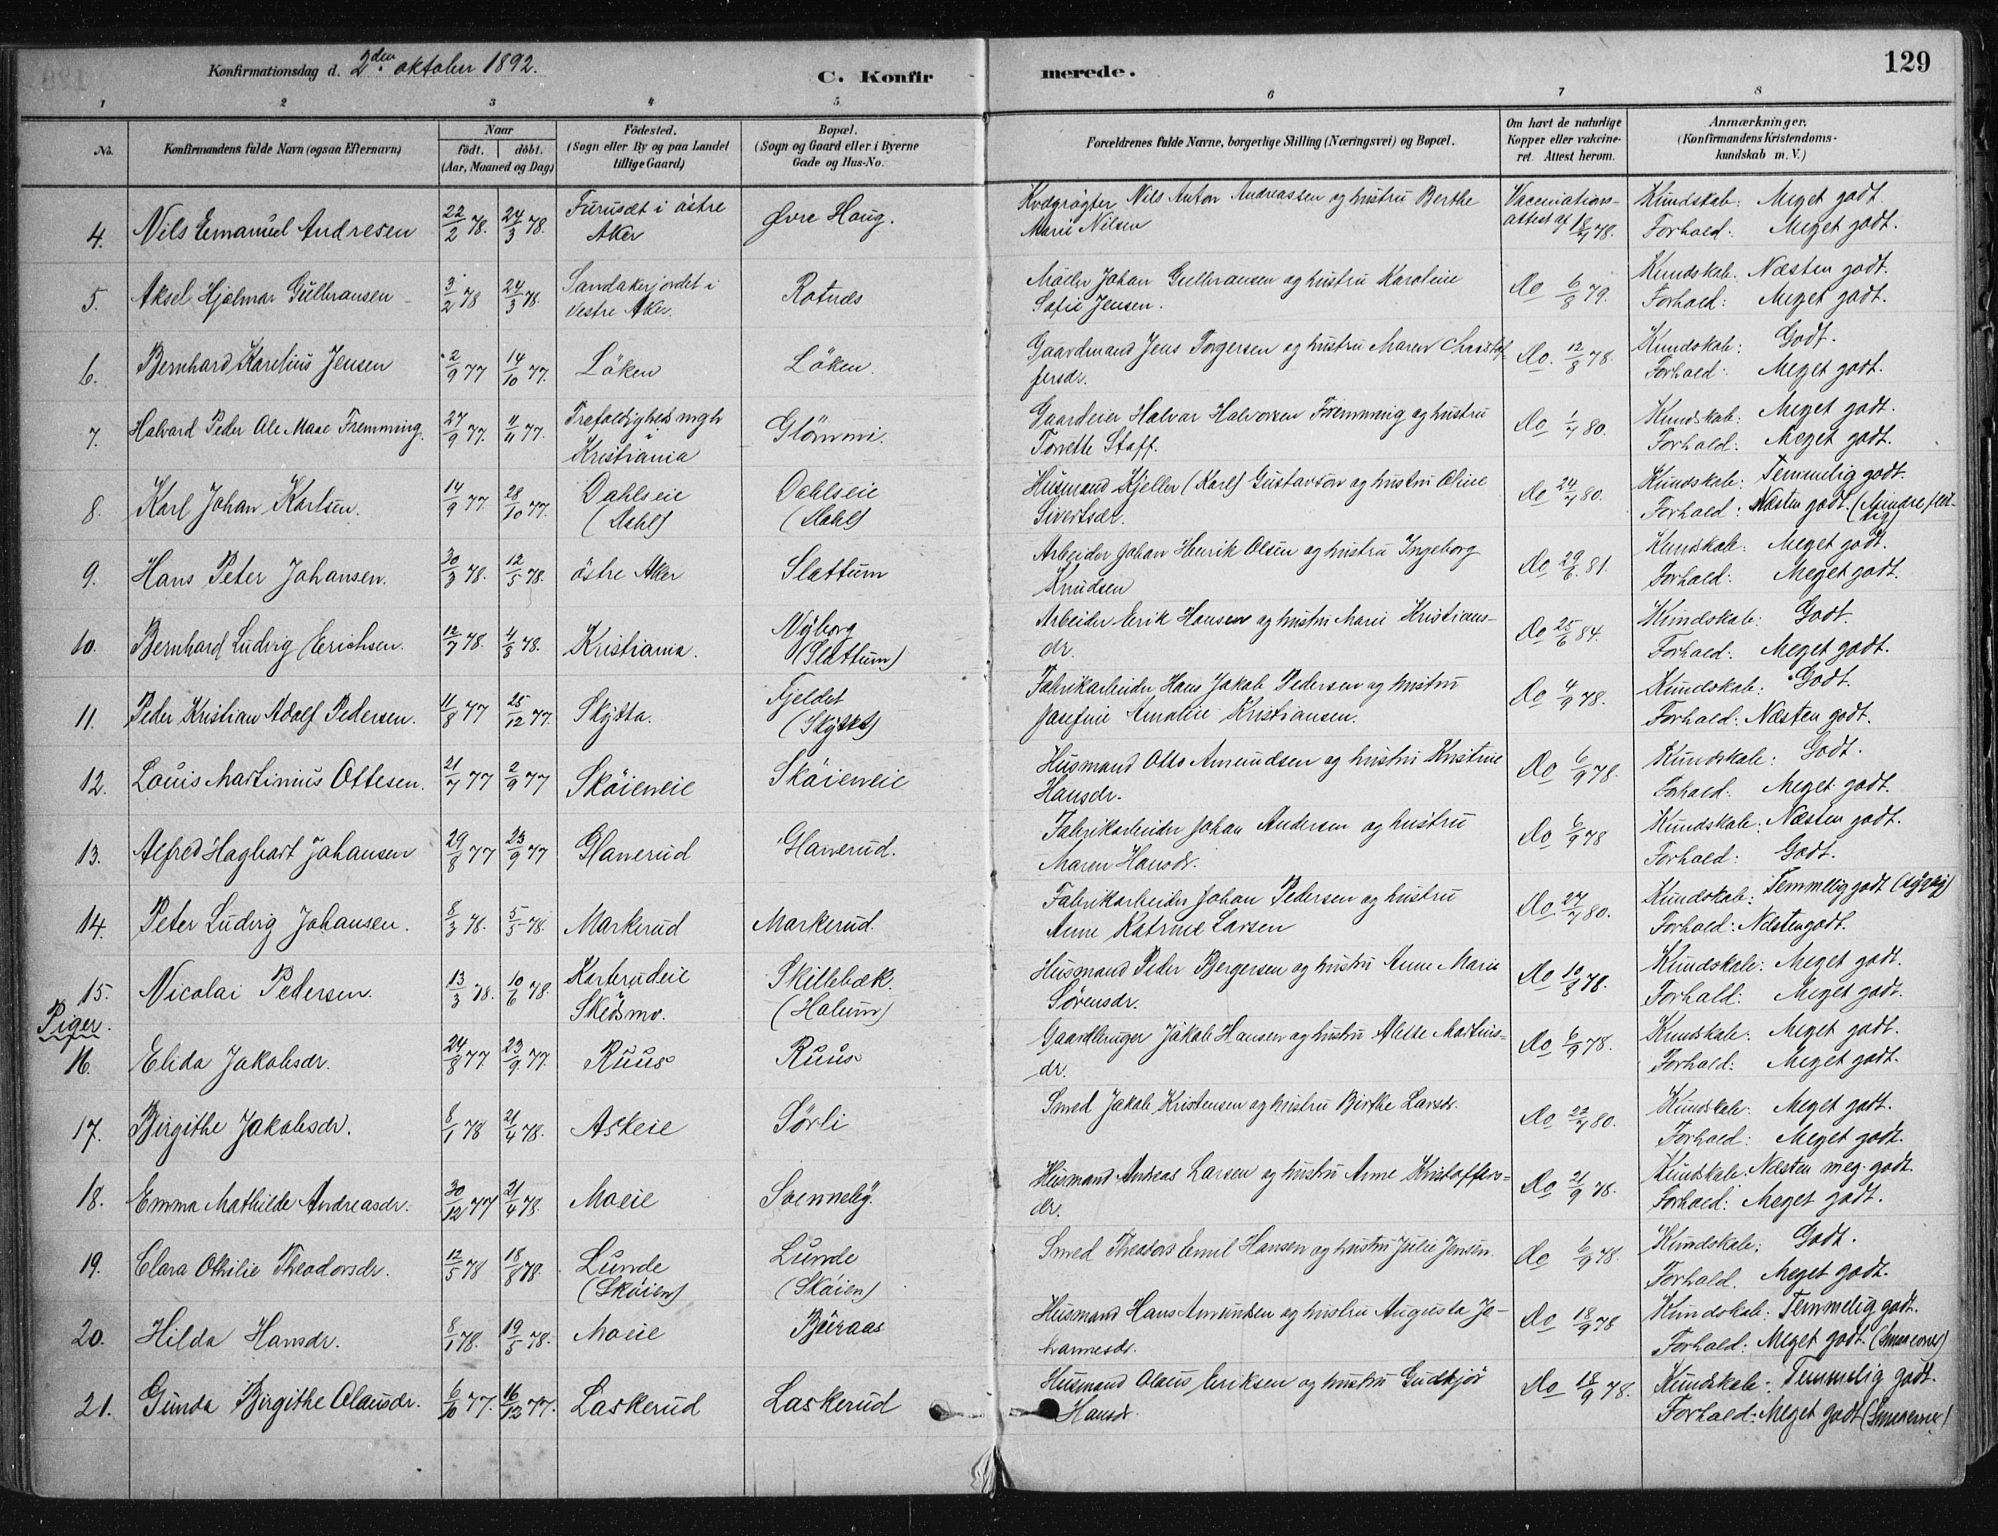 Konfirmationsdag d. 2den oktober 1892.
C. Konfirmerede.
129
1 2 3 4 5 6 7 8
No.
Konfirmandens fulde Navn (ogsaa Efternavn)
Naar
født. døbt.
(Aar, Maaned og Dag)
Fødested.
(Sogn eller By og paa Landet
tillige Gaard)
Bopæl.
(Sogn og Gaard eller i Byerne
Gade og Hus-No.
Forældrenes fulde Navne, borgerlige Stilling (Næringsvei) og Bopæl.
Om havt de naturlige
Kopper eller vakcine-
ret. Attest herom.
Anmærkninger.
(Konfirmandens Kristendoms-
kundskab m. V.)
4. Nils Emanuel Andresen 22/2 78. 24/3 78. Furusæt i östre Aker Øvre Haug. Kvægrögter Nils Anton Andreassen og hustru Berthe Marie Nilsen Vaccinations-attest af 18/7 78. Kundskab: Meget godt. Forhold: Meget godt.
5. Aksel Hjalmar Gulbransen 3/2 78 24/3 78. Sandakerjordet i Vestre Aker. Rotnes Möller Johan Gulbransen og hustru Karoline Sofie Jensen. Do 6/8 79. Kundskab: Næsten godt. Forhold: Meget godt.
6. Bernhard Karelius Jensen 2/9 77 14/10 77. Löken Löken. Gaardmand Jens Torgersen og hustru Maren Christoffersdr. Do. 12/8 78. Kundskab: Godt. Forhold: Meget godt.
7. Halvard Peder Ole Maae Fremming. 27/9 77. 11/11 77. Trefoldigheds mgh Kristiania Glömmi. Gaardeier Halvar Halvorsen Fremming og hustru Torette Staff. Do 1/7 80. Kundskab: Meget godt. Forhold: Meget godt.
8. Karl Johan Karlsen. 14/9 77. 28/10 77. Dahlseie (Dahl) Dahlseie (Dahl) Husmand Kjeller (Karl) Gustavson og hustru Oline Sivertsdr. Do 24/7 80. Kundskab: Temmelig godt. Forhold: Næsten godt. (Mindre flittig)
9. Hans Peter Johansen. 30/3 78. 12/5 78. östre Aker Slattum Arbeider Johan Henrik Olsen og hustru Ingeborg Knudsen Do 29/6 81. Kundskab: Meget godt. Forhold: Meget godt.
10. Bernhard Ludvig Erichsen. 12/7 78. 4/8 78. Kristiania. Nyborg (Slattum) Arbeider Erik Hansen og hustru Marie Kristiansdr. Do 25/6 84. Kundskab: Godt. Forhold: Meget godt.
11. Peder Kristian Adolf Pedersen. 11/8 77 25/12 77. Skytta. Fjeldet (Skytta) Fabrikarbeider Hans Jakob Pedersen og hustru Josefine Amalie Kristiansen. Do 4/9 78. Kundskab: Godt. Forhold: Næsten godt.
12. Louis Martinius Ottesen. 21/7 77 2/9 77 Sköieneie Sköieneie Husmand Otto Amundsen og hustru Kristine Hansdr. Do 6/9 78. Kundskab: Godt. Forhold: Meget godt.
13. Alfred Hagbart Johansen 29/8 77 23/9 77 Glanerud Glanerud. Fabrikarbeider Johan Andersen og hustru Maren Hansdr. Do 6/9 78 Kundskab: Næsten godt. Forhold: Godt.
14. Peter Ludvig Johansen. 8/3 78. 5/5 78. Markerud Markerud. Fabrikarbeider Johan Pedersen og hustru Anne Katrine Larsen Do 27/7 80. Kundskab: Temmelig godt (sygelig) Forhold: Næsten godt.
15. Nicolai Pedersen. 13/3 78. 10/6 78. Korterudeie Skedsmo. Skillebæk. (Holum) Husmand Peder Bergersen og hustru Anne Marie Sörensdr. Do 10/8 78. Kundskab: Meget godt. Forhold: Meget godt.
Piger.
16. Elida Jakobsdr. 24/8 77 23/9 77. Ruus Ruus Gaardbruger Jakob Hansen og hustru Alette Martinsdr. Do 6/9 78. Kundskab: Meget godt. Forhold: Meget godt.
17. Birgithe Jakobsdr. 8/1 78 21/4 78. Askeie Sørli Smed Jakob Kristensen og hustru Birthe Larsdr. Do 22/7 80. Kundskab: Meget godt. Forhold: Meget godt.
18. Emma Mathilde Andreasdr. 30/12 77 21/4 78. Moeie Svenneby. Husmand Andreas Larsen og hustru Anne Kristoffersdr. Do 21/9 78. Kundskab: Næsten meg. godt. Forhold: Meget godt.
19. Clara Othilie Theodorsdr. 12/5 78 18/8 78. Lunde (Sköien) Lunde (Sköien) Smed Theodors Emil Hansen og hustru Julie Jensen. Do 6/9 78. Kundskab: Godt. Forhold. Meget godt.
20. Hilda Hansdr. 8/1 78. 19/5 78. Moeie Böiraas Husmand Hans Amundsen og hustru Augusta Johannesdr. Do 18/9 78 Kundskab: Temmelig godt. Forhold: Meget godt.
21. Gunda Birgithe Olausdr. 6/10 77. 16/12 77. Laskerud Laskerud Husmand Olaus Eriksen og hustru Gudbjør Hansdr. Do 18/9 78. Kundskab: Temmelig godt. Forhold: Meget godt